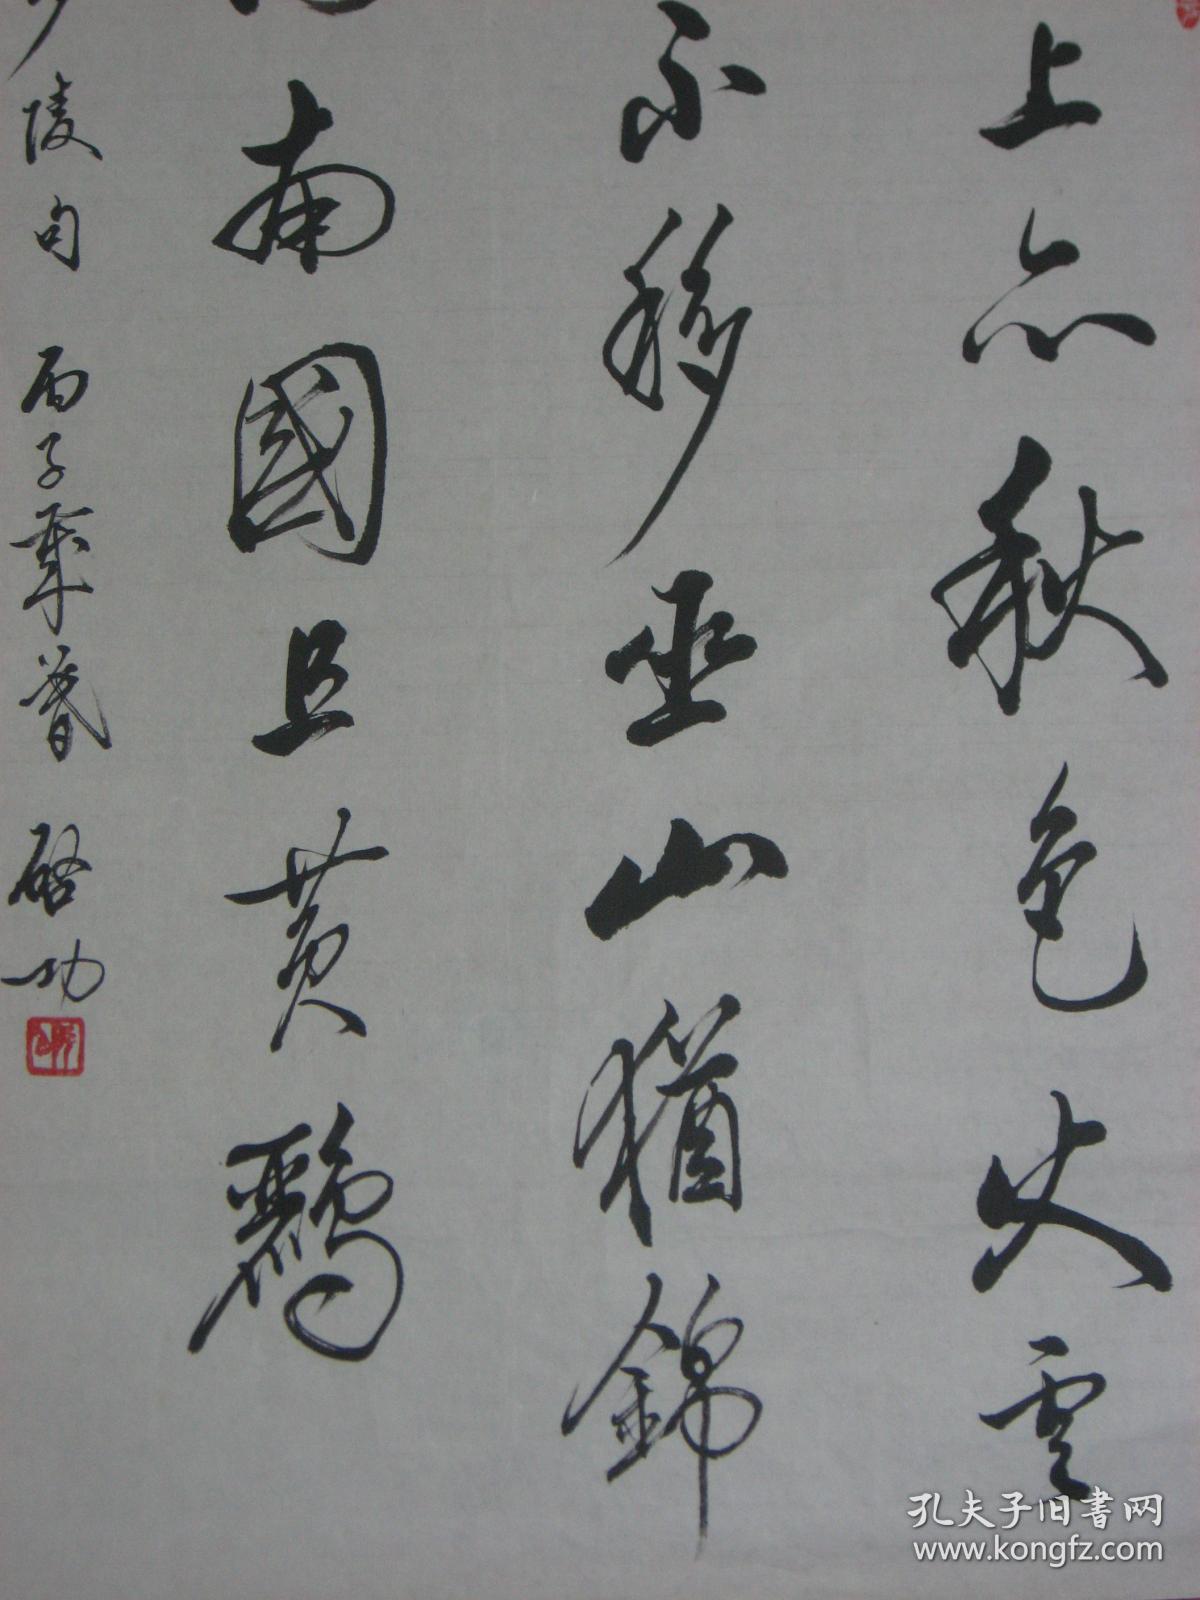 上亦秋色火雲
不移巫山猶錦
南國且黄鸝
陵句 丙子歲暮 啓功
孔夫子旧书网
www.kongfz.com